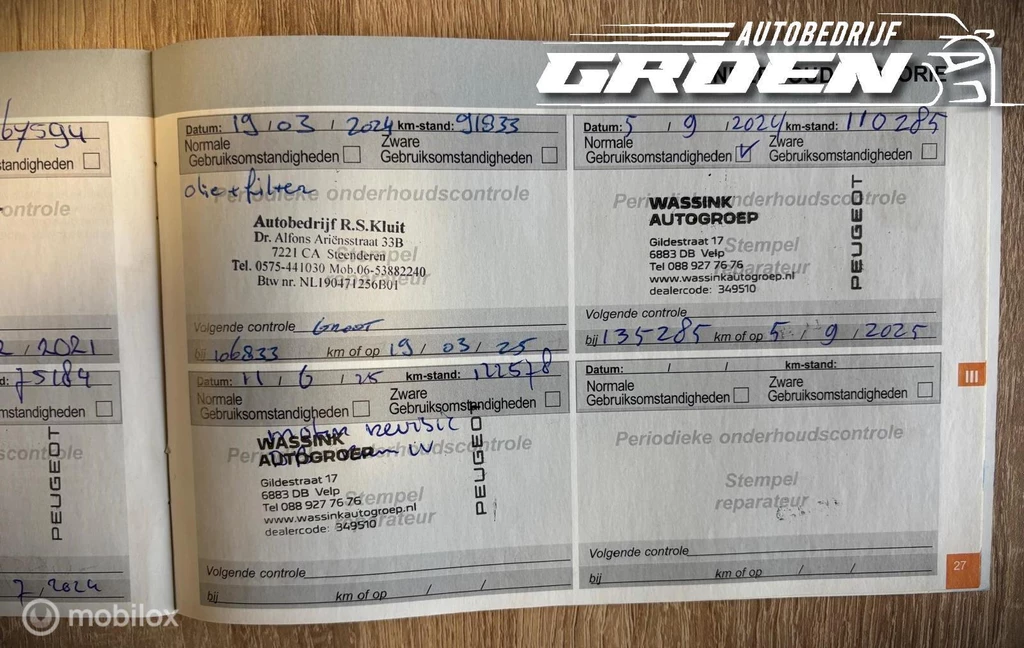 AUTOBEDRIJF
GROEN
67594
standigheden
ontrole
2 / 2021
d: 75184
mstandigheden
scontrole
PEUGEOT
7, 2024
Datum: 19 / 03 / 2024 km-stand: 91833
Normale Zware
Gebruiksomstandigheden Gebruiksomstandigheden
olie + filter
Periodieke onderhoudscontrole
Autobedrijf R.S.Kluit
Dr. Alfons Ariënsstraat 33B
7221 CA Steenderen
Tel. 0575-441030 Mob.06-53882240
Btw nr. NL190471256B01
Stempel
reparateur
Volgende controle Groot
bij 106833 km of op 19 / 03 / 25
Datum: 5 / 9 / 2024 km-stand: 110285
Normale Zware
Gebruiksomstandigheden Gebruiksomstandigheden
Periodieke onderhoudscontrole
WASSINK
AUTOGROEP
Gildestraat 17
6883 DB Velp
Tel 088 927 76 76
www.wassinkautogroep.nl
dealercode: 349510
PEUGEOT
Stempel
reparateur
Volgende controle
bij 135285 km of op 5 / 9 / 2025
Datum: 11 / 6 / 25 km-stand: 122578
Normale Zware
Gebruiksomstandigheden Gebruiksomstandigheden
motor revisie
Periodieke onderhoudscontrole
WASSINK
AUTOGROEP
Gildestraat 17
6883 DB Velp
Tel 088 927 76 76
www.wassinkautogroep.nl
dealercode: 349510
PEUGEOT
Stempel
reparateur
Volgende controle
bij / km of op / /
Datum: / / km-stand:
Normale Zware
Gebruiksomstandigheden Gebruiksomstandigheden
Periodieke onderhoudscontrole
Stempel
reparateur
Volgende controle
bij km of op / /
III
27
mobilox